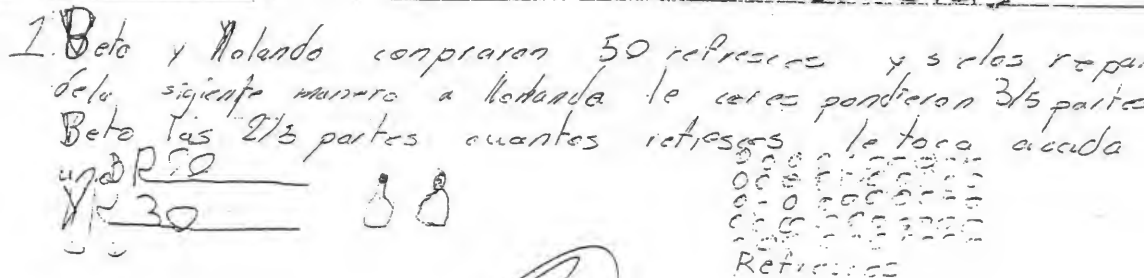 1. Beto y Rolando conpraron 50 refrescos y se los repar
dela sigiente manera a Rolando le cores pondieron 3/5 partes
Beto las 2/5 partes cuantos refrescos le toca acada
uno BR 20
30
Refrescos